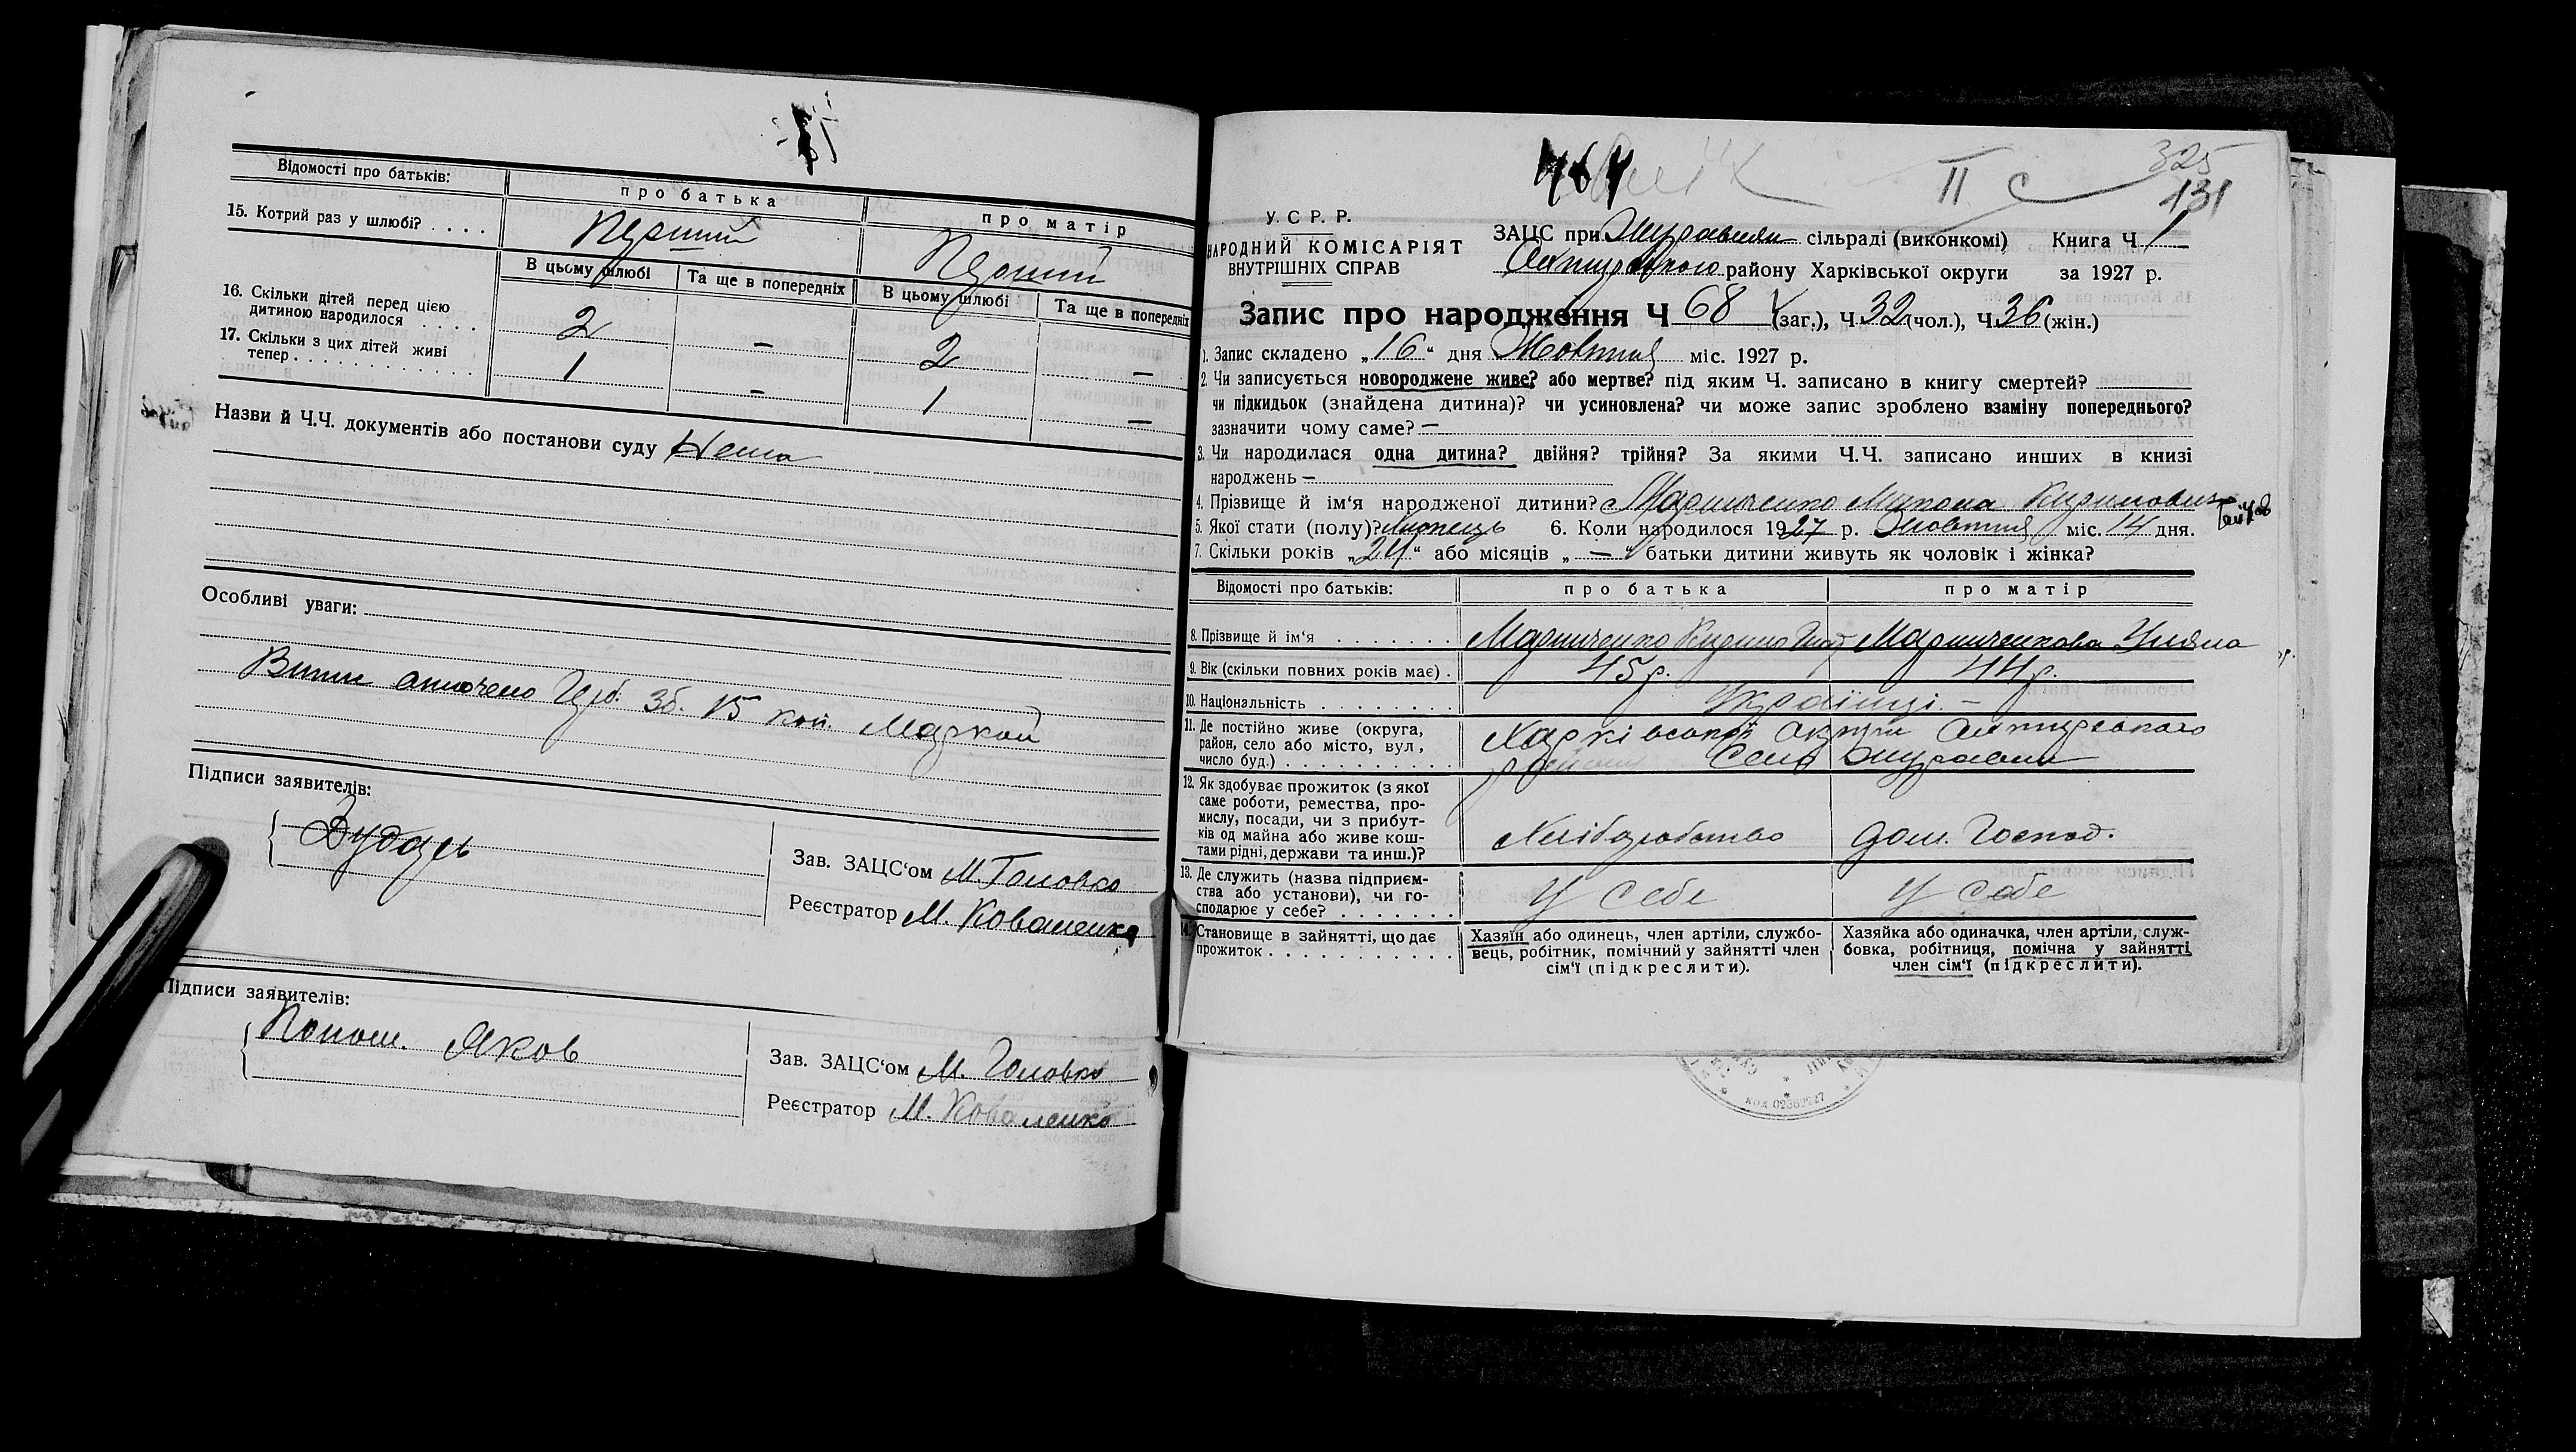 Відомості про батьків:
про батька
про матір
15. Котрий раз у шлюбі? . . . .
Перший
Перший
В цьому шлюбі
Та ще в попередніх
В цьому шлюбі
Та ще в попередніх
16. Скільки дітей перед цією
дитиною народилося . . . .
2
–
2
–
17. Скільки з цих дітей живі
тепер . . . . . . . . . . . .
1
–
1
–
Назви й Ч.Ч. документів або постанови суду Нема
Особливі уваги:
Витяг оплочено Герб. Зб. 15 коп. Маркой
Підписи заявителів:
Зубарь
Зав. ЗАЦС'ом М. Головко
Реєстратор М. Коваленко
Підписи заявителів:
Яков
Зав. ЗАЦС'ом М. Головко
Реєстратор М. Коваленко
II с
325
131
У. С Р. Р.
НАРОДНИЙ КОМІСАРІЯТ
ВНУТРІШНІХ СПРАВ
ЗАЦС при Журавлян сільраді (виконкомі) Книга Ч 1
району Харківської округи за 1927 р.
Запис про народження Ч 68 (заг.), Ч 32 (чол.), Ч 36 (жін.)
1. Запис складено „16“ дня Жовтня міс. 1927 р.
2. Чи записується новороджене живе? або мертве? під яким Ч. записано в книгу смертей?
чи підкидьок (знайдена дитина)? чи усиновлена? чи може запис зроблено взаміну попереднього?
зазначити чому саме? –
3. Чи народилася одна дитина? двійня? трійня? За якими Ч.Ч. записано инших в книзі
народжень –
4. Прізвище й ім'я народженої дитини? Марниченко Микола Кирилович
5. Якої стати (полу)? Хлопець 6. Коли народилося 1927 р. Жовтня міс. 14 дня.
7. Скільки років „24“ або місяців „–“ батьки дитини живуть як чоловік і жінка?
Відомості про батьків:
про батька
про матір
8. Прізвище й ім'я . . . . . . .
Марниченко Кирило
Марниченкова Уляна
9. Вік (скільки повних років має) .
45 р.
44 р.
10. Національність . . . . . . . .
Українці –
11. Де постійно живе (округа,
район, село або місто, вул,
число буд.) . . . . . . . . . .
Харківської Округи
району Село Журавли
12. Як здобуває прожиток (з якої
саме роботи, ремества, про-
мислу, посади, чи з прибут-
ків од майна або живе кош-
тами рідні, держави та инш.)?
Хліборобство
Дом. Господ.
13. Де служить (назва підприєм-
ства або установи), чи го-
сподарює у себе? . . . . . . .
У себе
У себе
14. Становище в зайнятті, що дає
прожиток . . . . . . . . . . .
Хазяїн або одинець, член артіли, службо-
вець, робітник, помічний у зайнятті член
сім'ї (підкреслити).
Хазяйка або одиначка, член артіли, служ-
бовка, робітниця, помічна у зайнятті
член сім'ї (підкреслити).
КОД 02362227